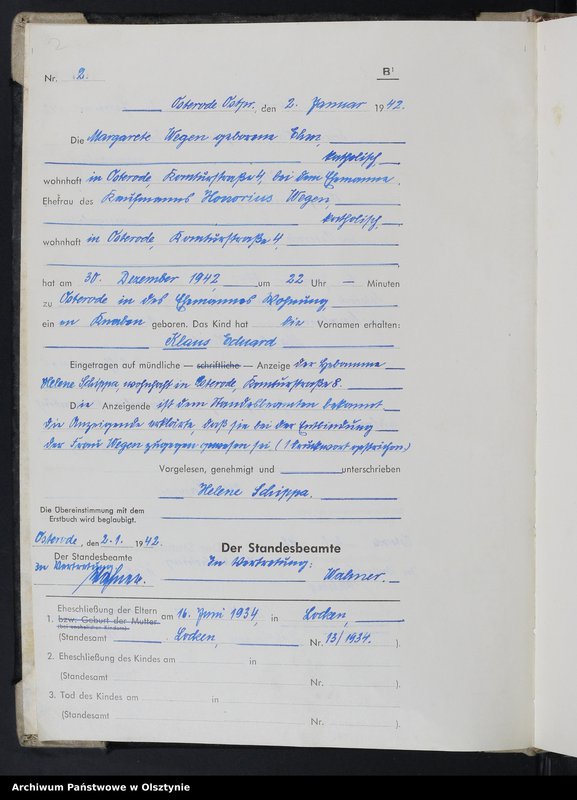 2
Nr. 2. B1
Osterode Ostpr., den 2. Januar 1942.
Die Margarete Wegen geborene
katholisch,
wohnhaft in Osterode, Komturstraße 4, bei dem Ehemanne,
Ehefrau des Kaufmanns Honorius Wegen,
katholisch,
wohnhaft in Osterode, Komturstraße 4,
hat am 30. Dezember 1942 um 22 Uhr — Minuten
zu Osterode in des Ehemannes Wohnung
ein en Knaben geboren. Das Kind hat die Vornamen erhalten:
Klaus Eduard
Eingetragen auf mündliche — schriftliche — Anzeige der Hebamme
Helene Schippa, wohnhaft in Osterode, Komturstraße 8.
Die Anzeigende ist dem Standesbeamten bekannt
die Anzeigende erklärte, daß sie bei der Entbindung
der Frau Wegen zugegen gewesen sei (1 Druckwort gestrichen)
Vorgelesen, genehmigt und unterschrieben
Helene Schippa.
Die Übereinstimmung mit dem
Erstbuch wird beglaubigt.
Osterode, den 2. 1. 1942.
Der Standesbeamte
Der Standesbeamte
In Vertretung:
In Vertretung
1. Eheschließung der Eltern am 16. Juni 1934 in Locken,
bzw. Geburt der Mutter
(bei unehelichen Kindern)
(Standesamt Locken, Nr. 13/1934. ).
2. Eheschließung des Kindes am in
(Standesamt Nr. ).
3. Tod des Kindes am in
(Standesamt Nr. ).
Archiwum Państwowe w Olsztynie